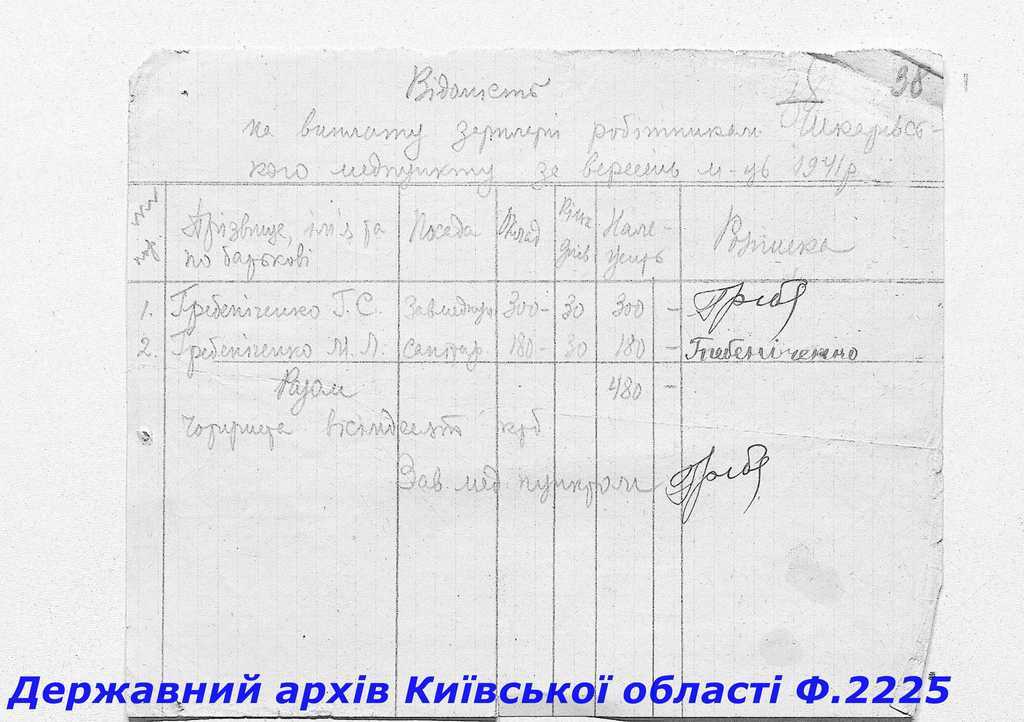 38
Відомість
на виплату зарплати робітникам Шкарівсь-
кого медпункту за вересень м-ць 1941 р.
Прізвище, ім'я та по батькові Посада Оклад Кільк днів Нале-жить Розписка
1. Гребеніченко Г. С. Завмедпун 300- 30 300 -
2. Гребеніченко М. Л. санітар 180- 30 180 - Гребеніченко
Разом 480 -
Чотириста вісімдесят крб
Зав. мед. пунктом
Державний архів Київської області Ф.2225